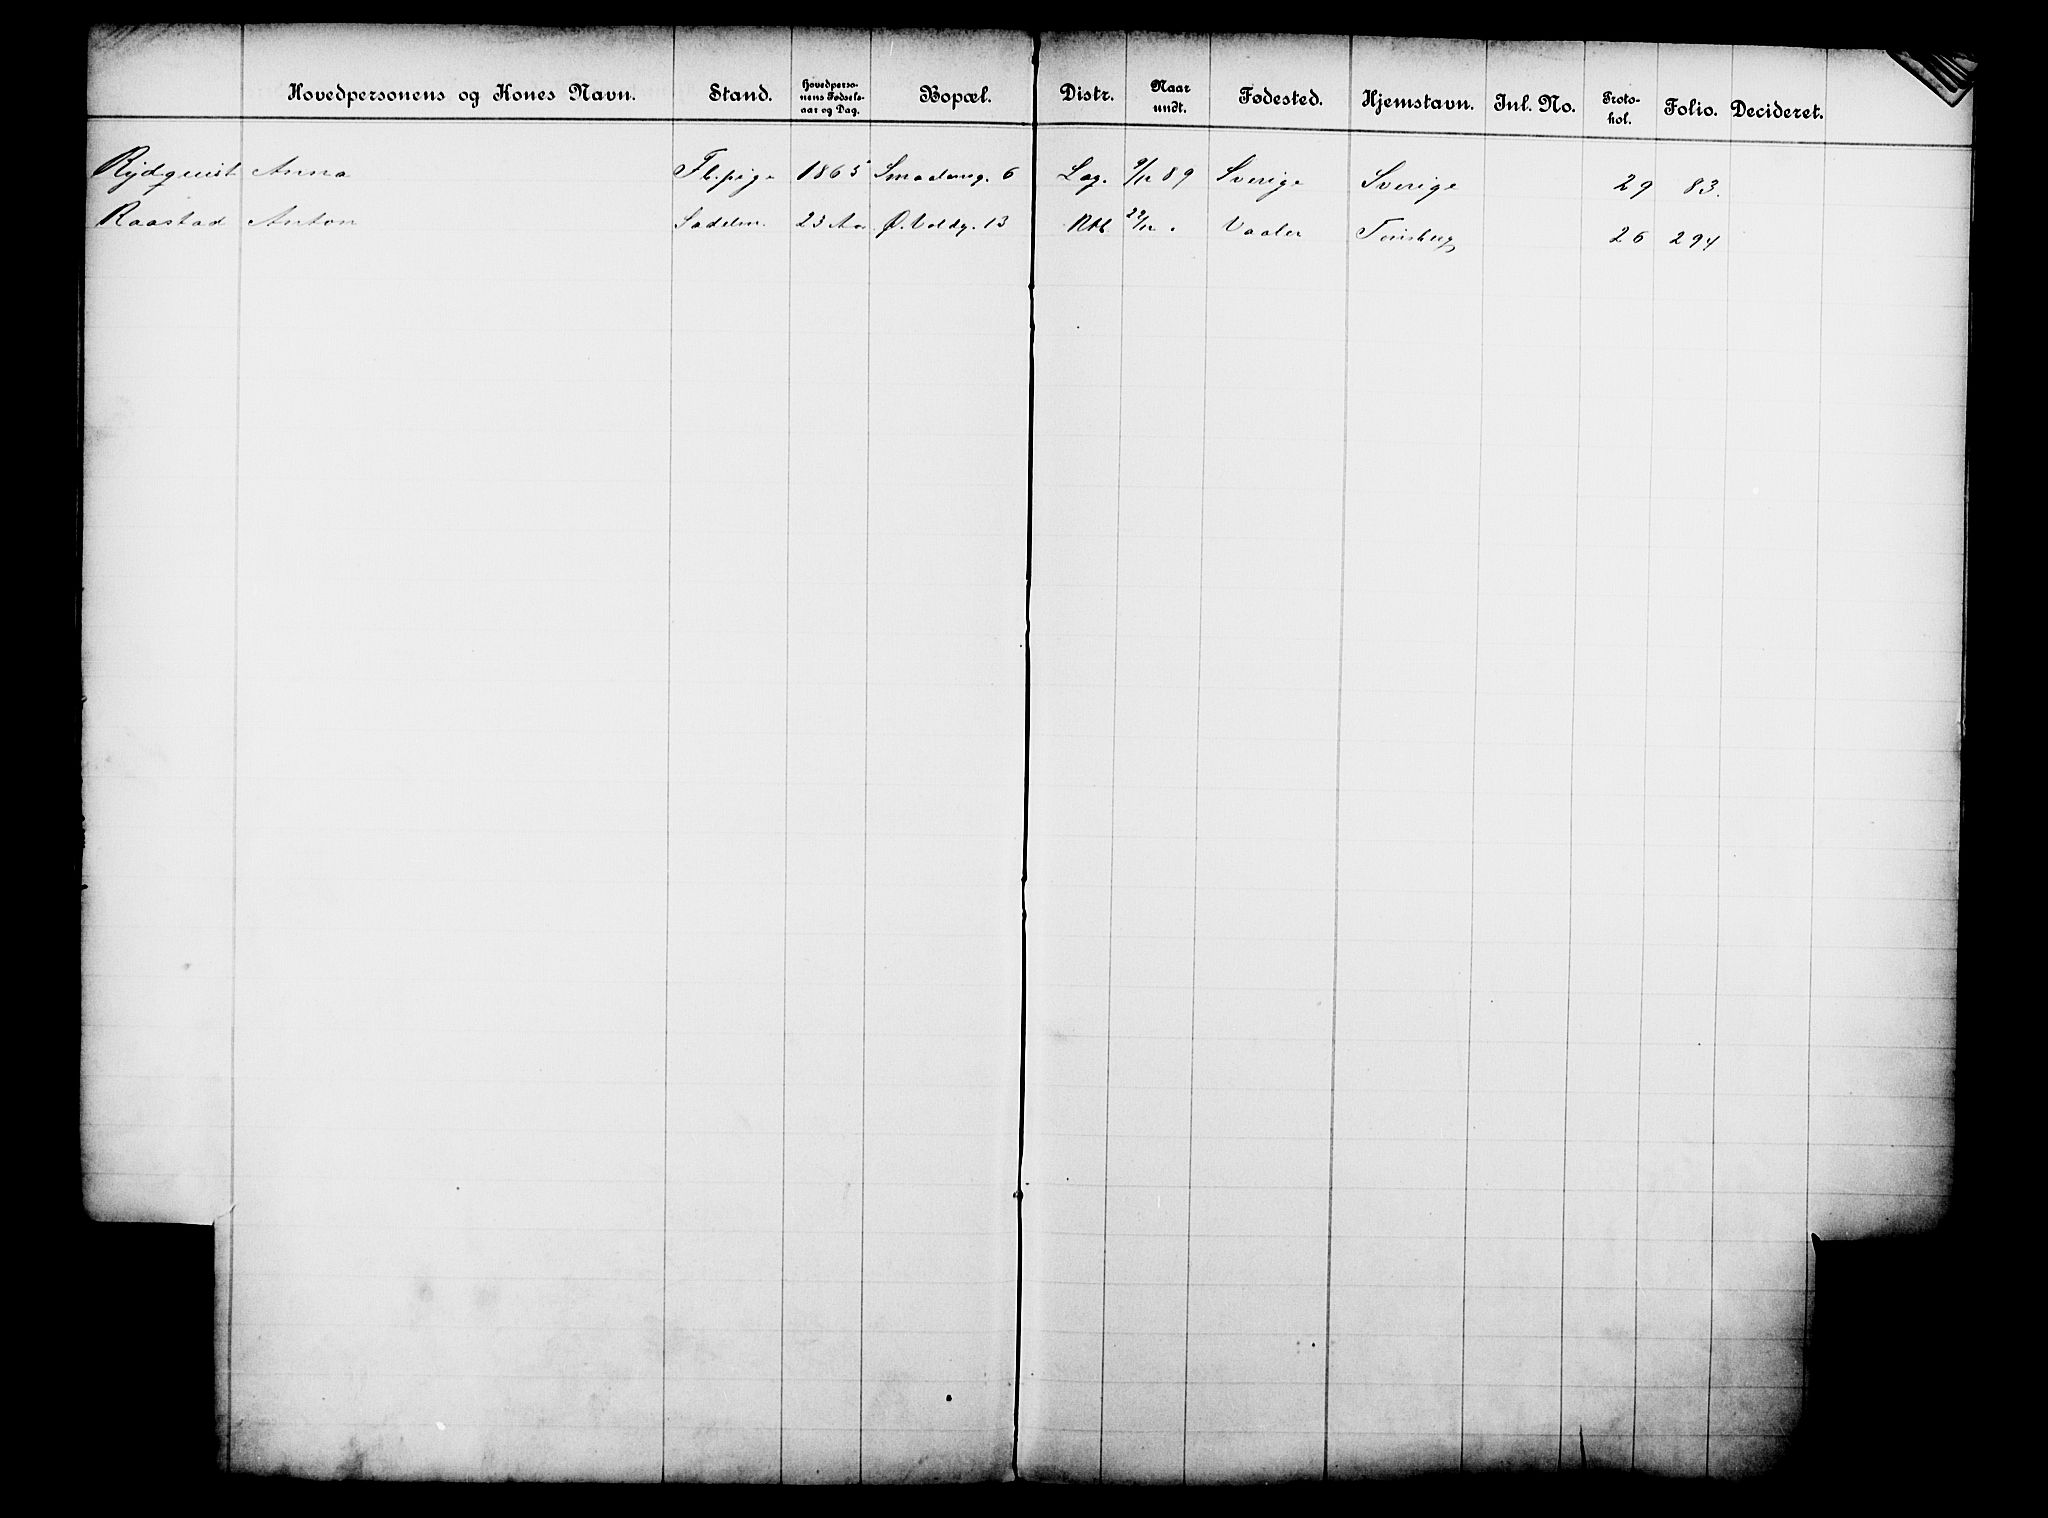 Hovedpersonens og Kones Navn. Stand. Hovedperso-nens Fødsels-aar og Dag. Bopæl. Distr. Naar undt. Fødested. Hjemstavn. Inl. No. Proto-kol. Folio. Decideret.
Rydquist Anna Fb.pige 1865 6 Lag. 9/12 89 Sverige Sverige 29 83.
Raastad Anton Sadelm. 23 Aar Ø. Voldg. 13 29/12 Vaaler 26 294